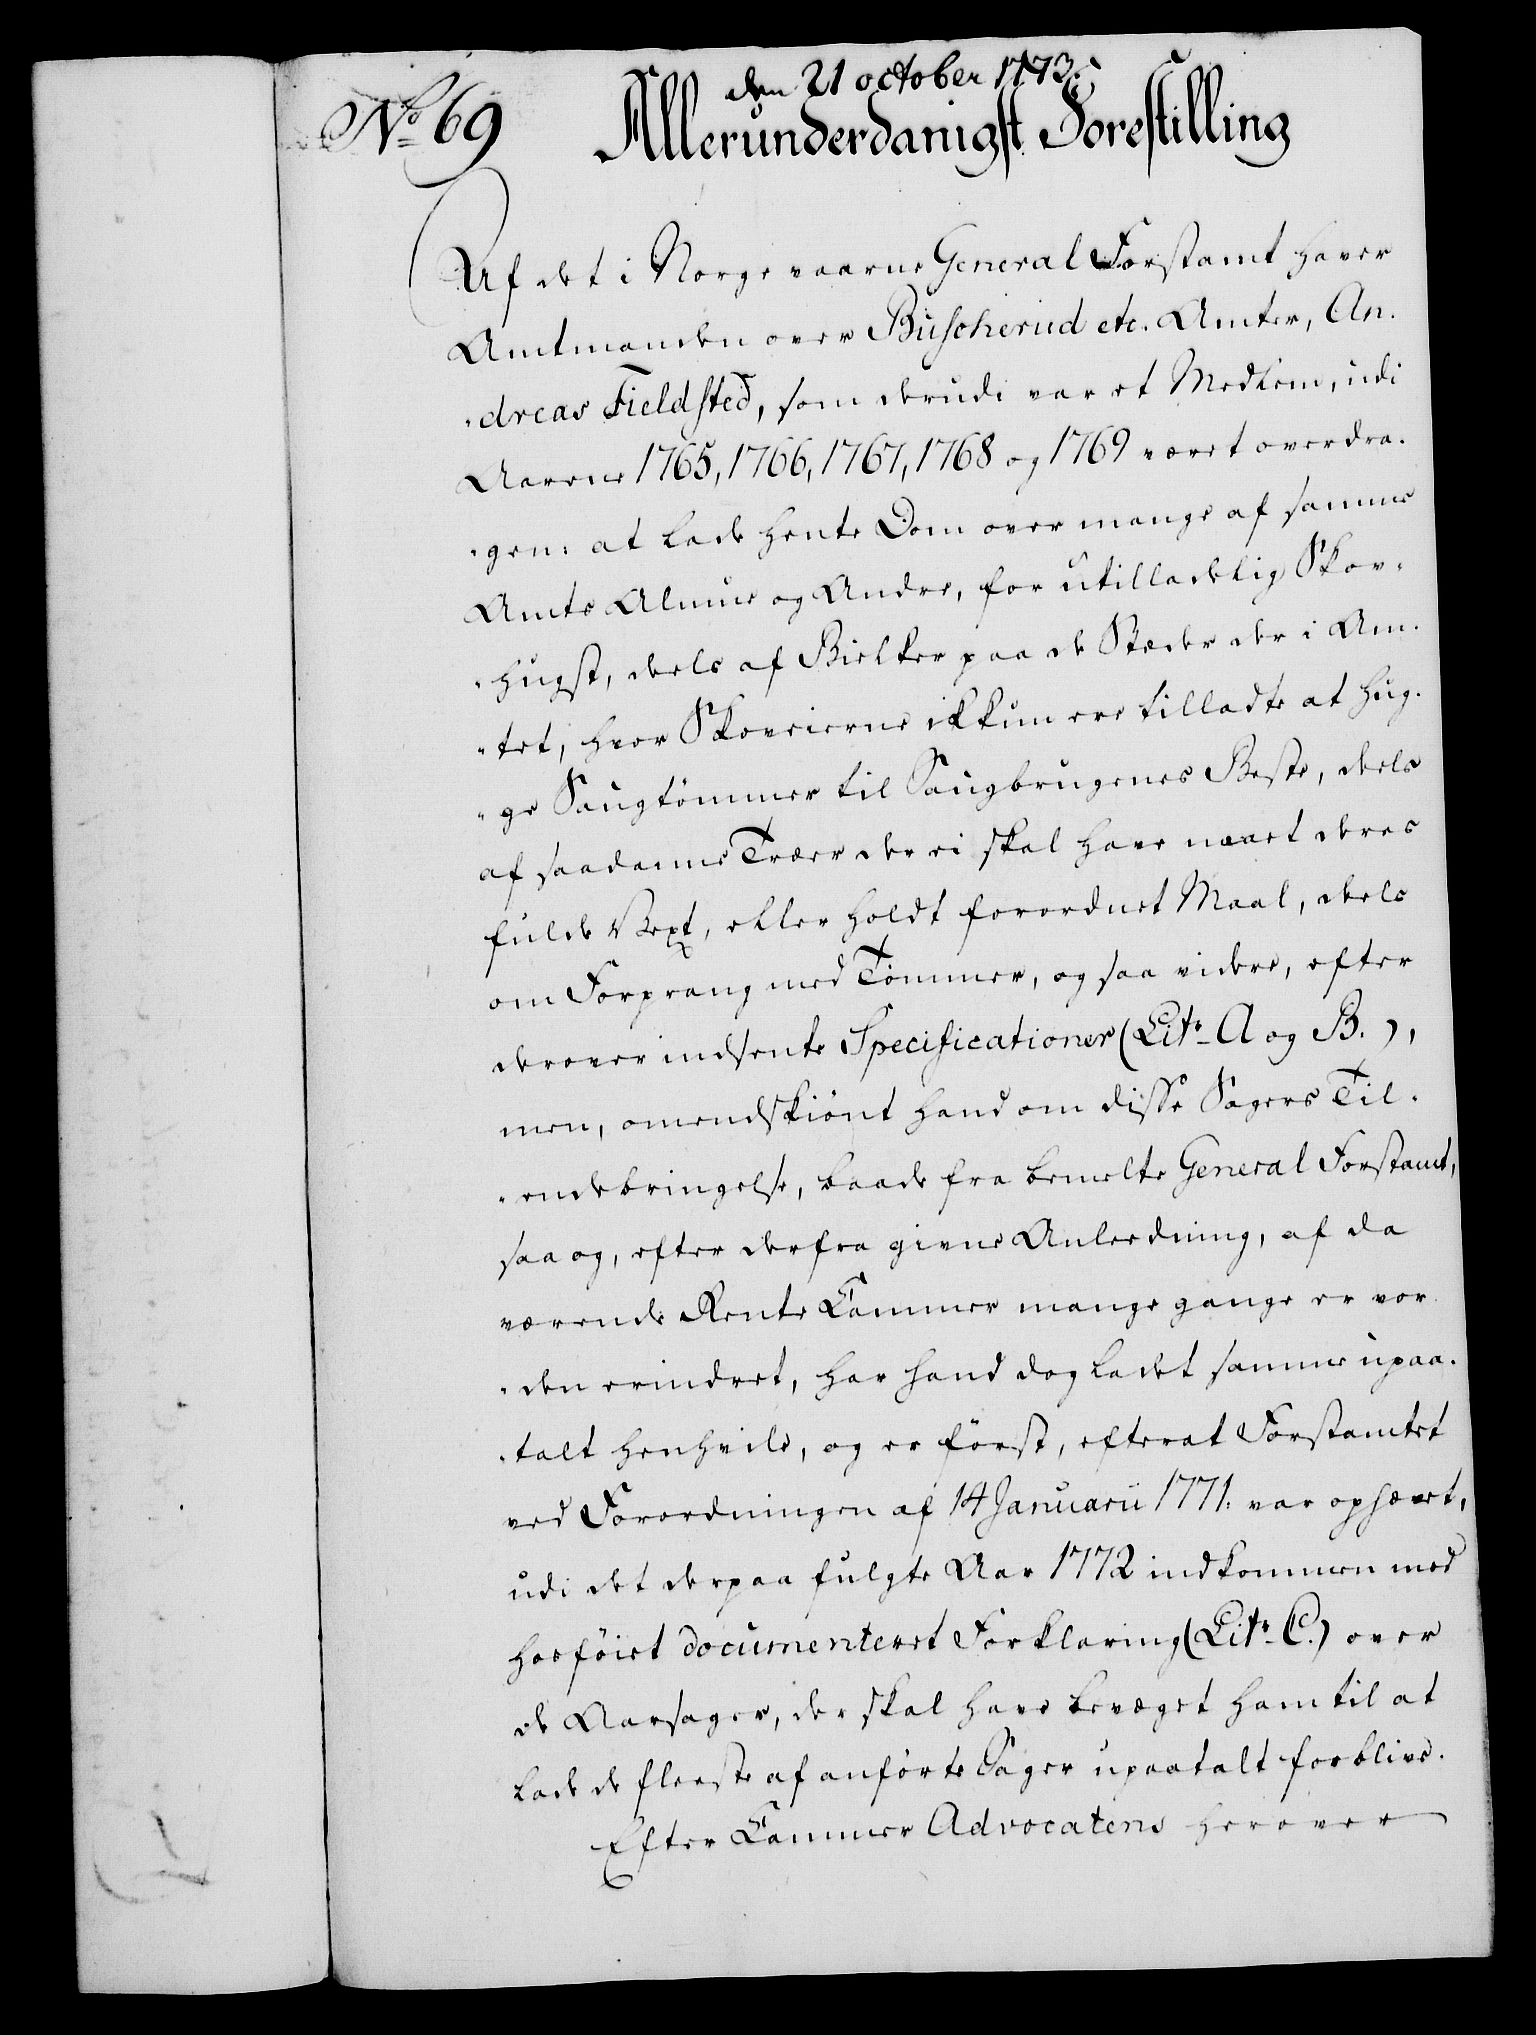 den 21 october 1773.
No 69 Allerunderdanigst Forestilling
Af det i Norge vaarne General Forstamt haver
Amtmanden over Buscherud etc. Amter, An-
dreas Fieldsted, som derudi var et Medlem, udi
Aarene 1765, 1766, 1767, 1768 og 1769 været overdra-
gen: at lade hente Dom over mange af samme
Amts Almue og Andre, for utilladelig Skov-
hugst, deels af Bielker paa de Stæder der i Am-
tet, hvor Skoveierne ikkun ere tilladte at hug-
ge Saugtömmer til Saugbrugenes Beste, deels
af saadanne Træer der ei skal have naaet deres
fulde Vext, eller holdt forordnet Maal, deels
om Forprang med Tömmer, og saa videre, efter
derover indsente Specificationer (Litr. A og B.),
men, omendskiönt hand om disse Sagers Til-
endebringelse, baade fra bemelte General Forstamt,
saa og, efter derfra givne Anleedning, af da
værende Rente Cammer mange gange er vor-
den erindret, har hand dog ladet samme upaa-
talt henhvile, og er först, efterat Forstamtet
ved Forordningen af 14 Januarii 1771. var ophævet,
udi det derpaa fulgte Aar 1772 indkommen med
hosföiet documenteret Forklaring (Litr. C.) over
de Aarsager, der skal have bevæget ham til at
lade de fleeste af anförte Sager upaatalt forblive.
Efter Cammer Advocatens herover